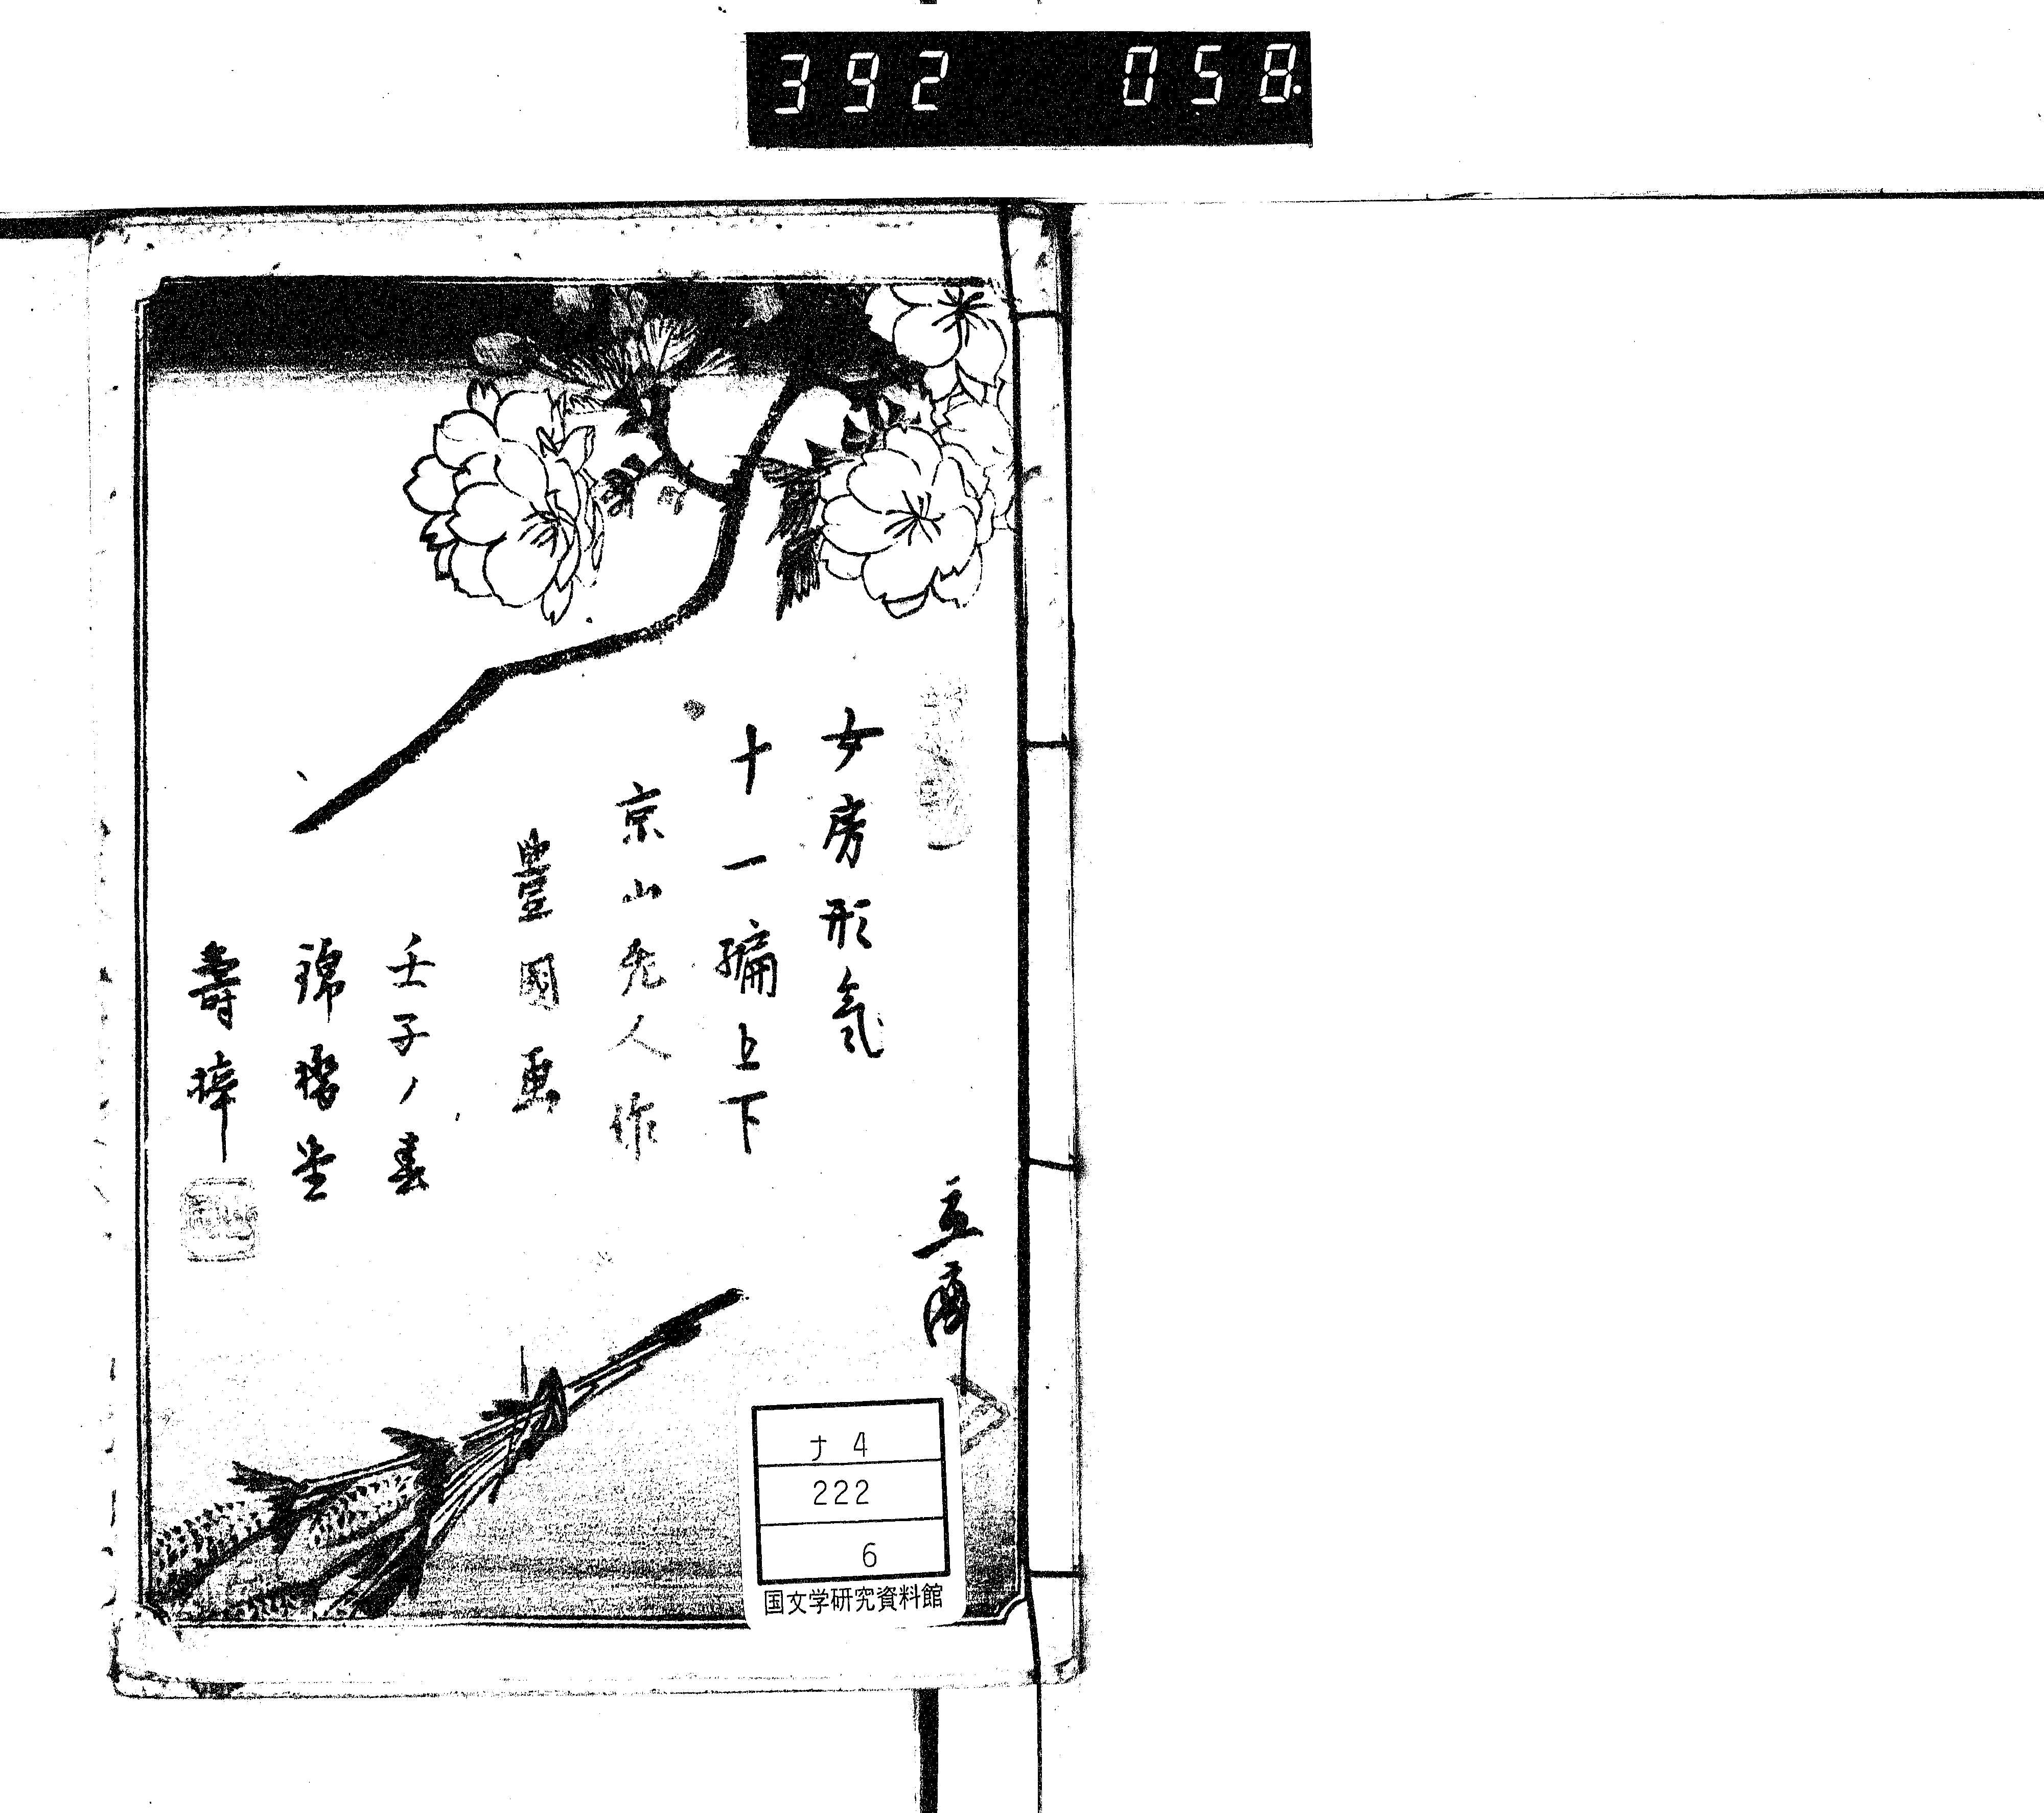 392 058.
女房形氣
十一編上下
京山老人作
豊國画
壬子ノ春
錦橋堂
壽梓
ナ 4
222
6
国文学研究資料館